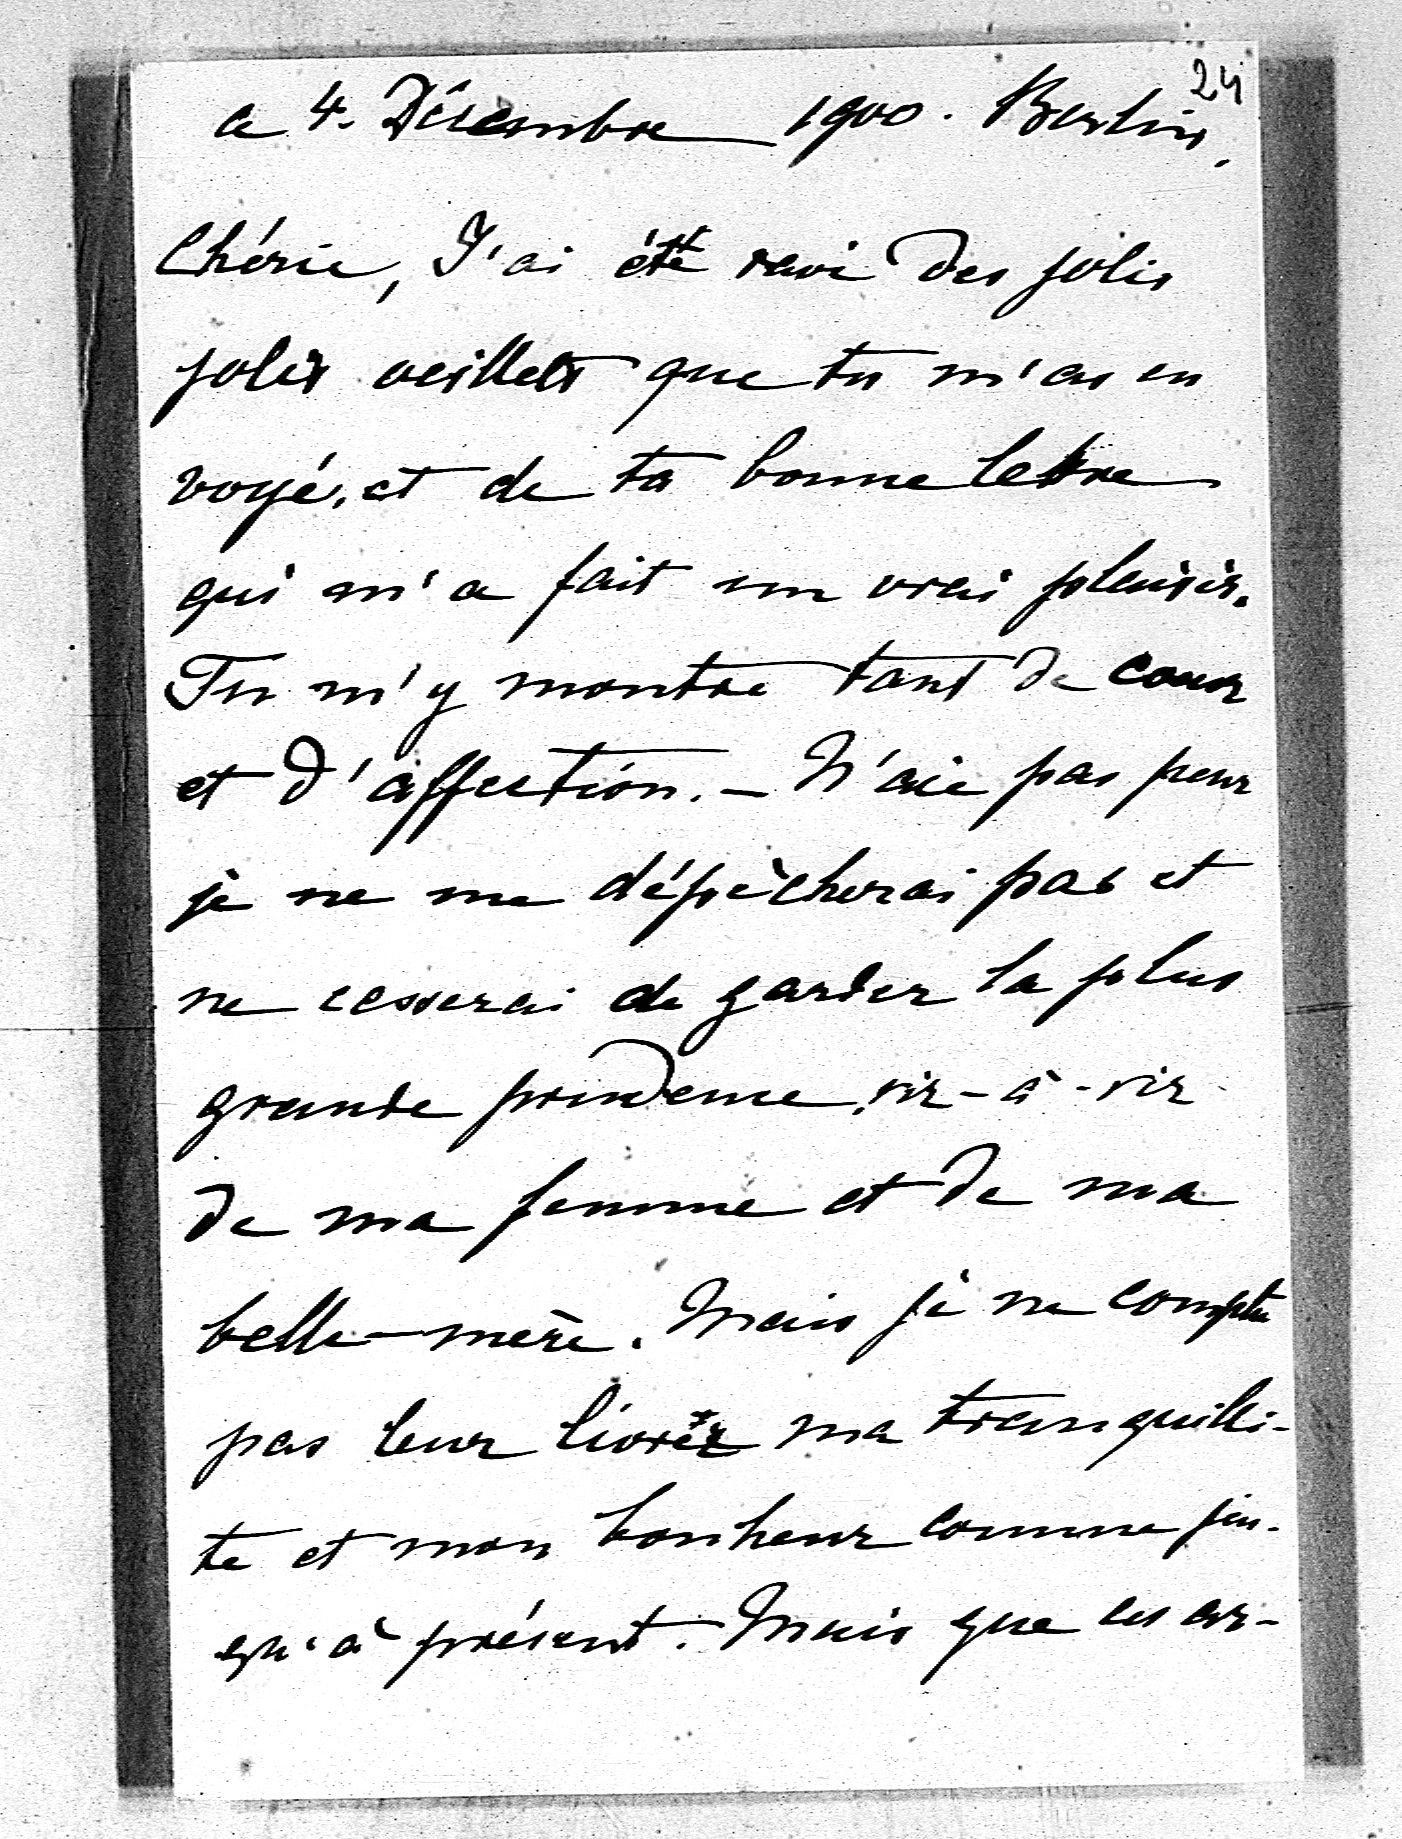 24
a 4. Décembre 1900. Berlin.
Chérie, J'ai été ravi des jolis
jolis oeillets que tu m'as en
voyé, et de ta bonne lettre
qui m'a fait un vrai plaisir.
Tu m'y montre tant de coeur
et d'affection. — N'aie pas peur
je ne me dépècherai pas et
ne cesserai de garder la plus
grande prudence vis-à-vis
de ma femme et de ma
belle-mère. Mais je ne compte
pas leur livrer ma tranquilli-
te et mon bonheur comme jus-
qu'à présent. Mais que ces ar-